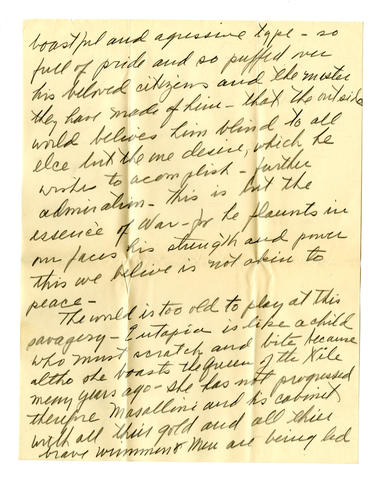 boastful and agressive type – so
full of pride and so puffed over
his beloved citizens and the master
they have made of him – that the outside
world belives him blind to all
else but the one desire, which he
wishes to acomplish – further
admiration – this is but the
essence of War – for he flaunts in
our faces his strength and power
this we belive is not akin to
peace –
The world is too old to play at this
savagery – Eutopia is like a child
who must scratch and bite because
altho she boasts the Queen of the Nile
many years ago – she has not progressed
therefore Masallini and his cabinet
with all thier gold and all thier
brave wimmen & men are being led